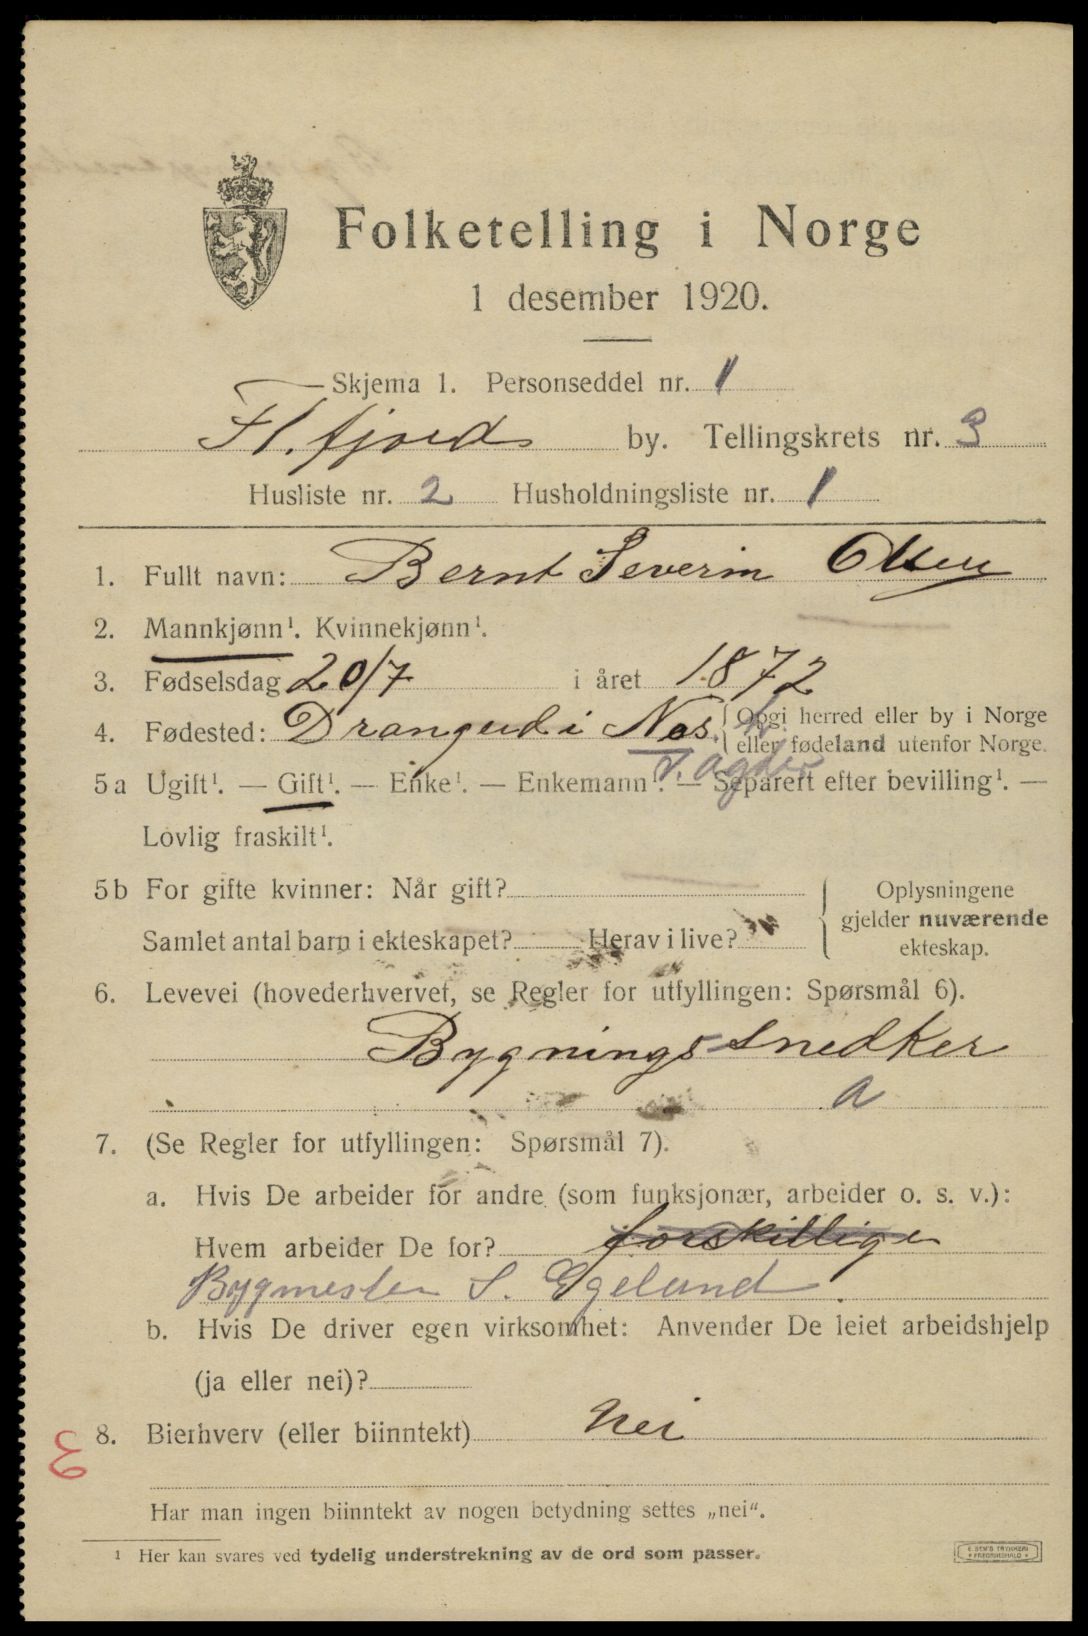 Folketelling i Norge
1 desember 1920.
Skjema 1. Personseddel nr. 1
Fl.fjord by. Tellingskrets nr. 3
Husliste nr. 2 Husholdningsliste nr. 1
1. Fullt navn: Bernt Severin Olsen
2. Mannkjønn¹. Kvinnekjønn¹.
3. Fødselsdag 20/7 i året 1872
4. Fødested: Drangeid i Nes. h { Opgi herred eller by i Norge
eller fødeland utenfor Norge.
V. Agder
5a Ugift¹. — Gift¹. — Enke¹. — Enkemann¹. — Separert efter bevilling¹. —
Lovlig fraskilt¹.
5b For gifte kvinner: Når gift? { Oplysningene
gjelder nuværende
Samlet antal barn i ekteskapet? Herav i live? ekteskap.
6. Levevei (hovederhvervet, se Regler for utfyllingen: Spørsmål 6).
Bygningssnedker
a
7. (Se Regler for utfyllingen: Spørsmål 7).
a. Hvis De arbeider for andre (som funksjonær, arbeider o. s. v.):
Hvem arbeider De for? forskillige
Bygmester S. Egeland.
b. Hvis De driver egen virksomhet: Anvender De leiet arbeidshjelp
(ja eller nei)?
8. Bierhverv (eller biinntekt) Nei
3
Har man ingen biinntekt av nogen betydning settes „nei".
¹ Her kan svares ved tydelig understrekning av de ord som passer.
E. SEM'S TRYKKERI
FREDRIKSHALD